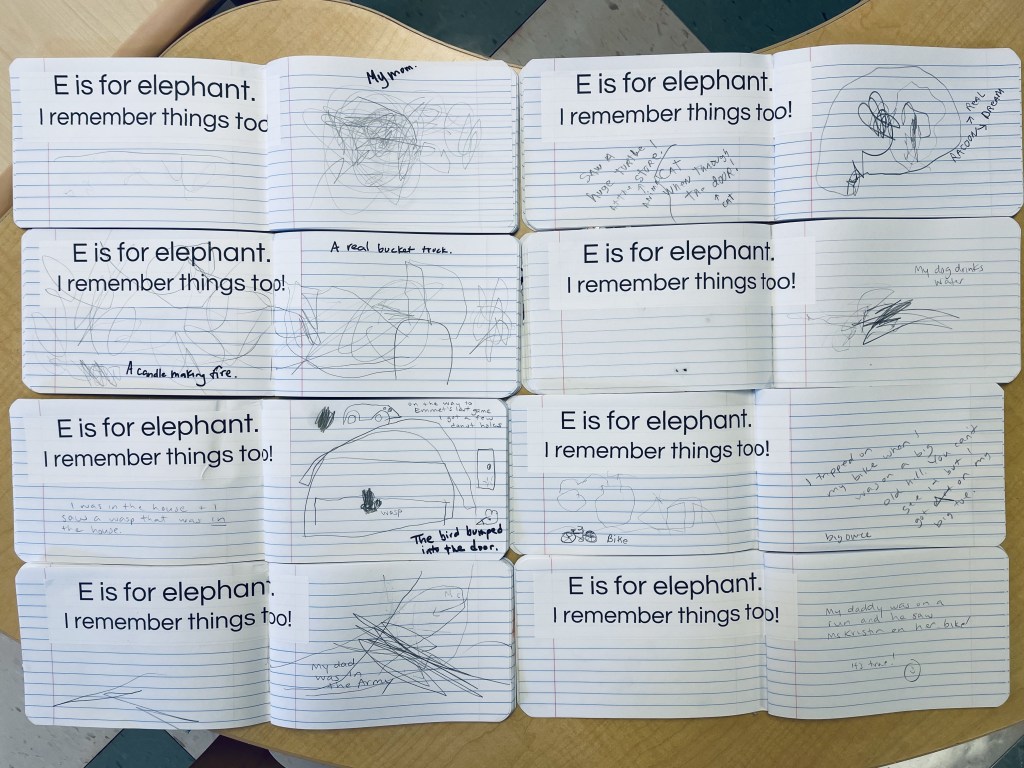 E is for elephant.
I remember things too
My mom.
E is for elephant.
I remember things too!
Saw a
huge turtle!
store!
Cat
when through
the door!
Cat
Racoon → Real
Dream
E is for elephant.
I remember things too!
A candle making fire.
A real bucket truck.
E is for elephant.
I remember things too!
My dog drinks
water
E is for elephant.
I remember things too!
I was in the house + I
saw a wasp that was in
the house.
on the way to
Emmet's last game
I got a few
donut holes
wasp
The bird bumped
into the door.
E is for elephant.
I remember things too!
Bike
I tripped on
my bike when I
was on a big
old hill. You can't
see it but I
got on my
big toe.
big owee
E is for elephant.
I remember things too!
My dad
was in
the Army
E is for elephant.
I remember things too!
My daddy was on a
run and he saw
Ms Kristin on her bike!
It's true!